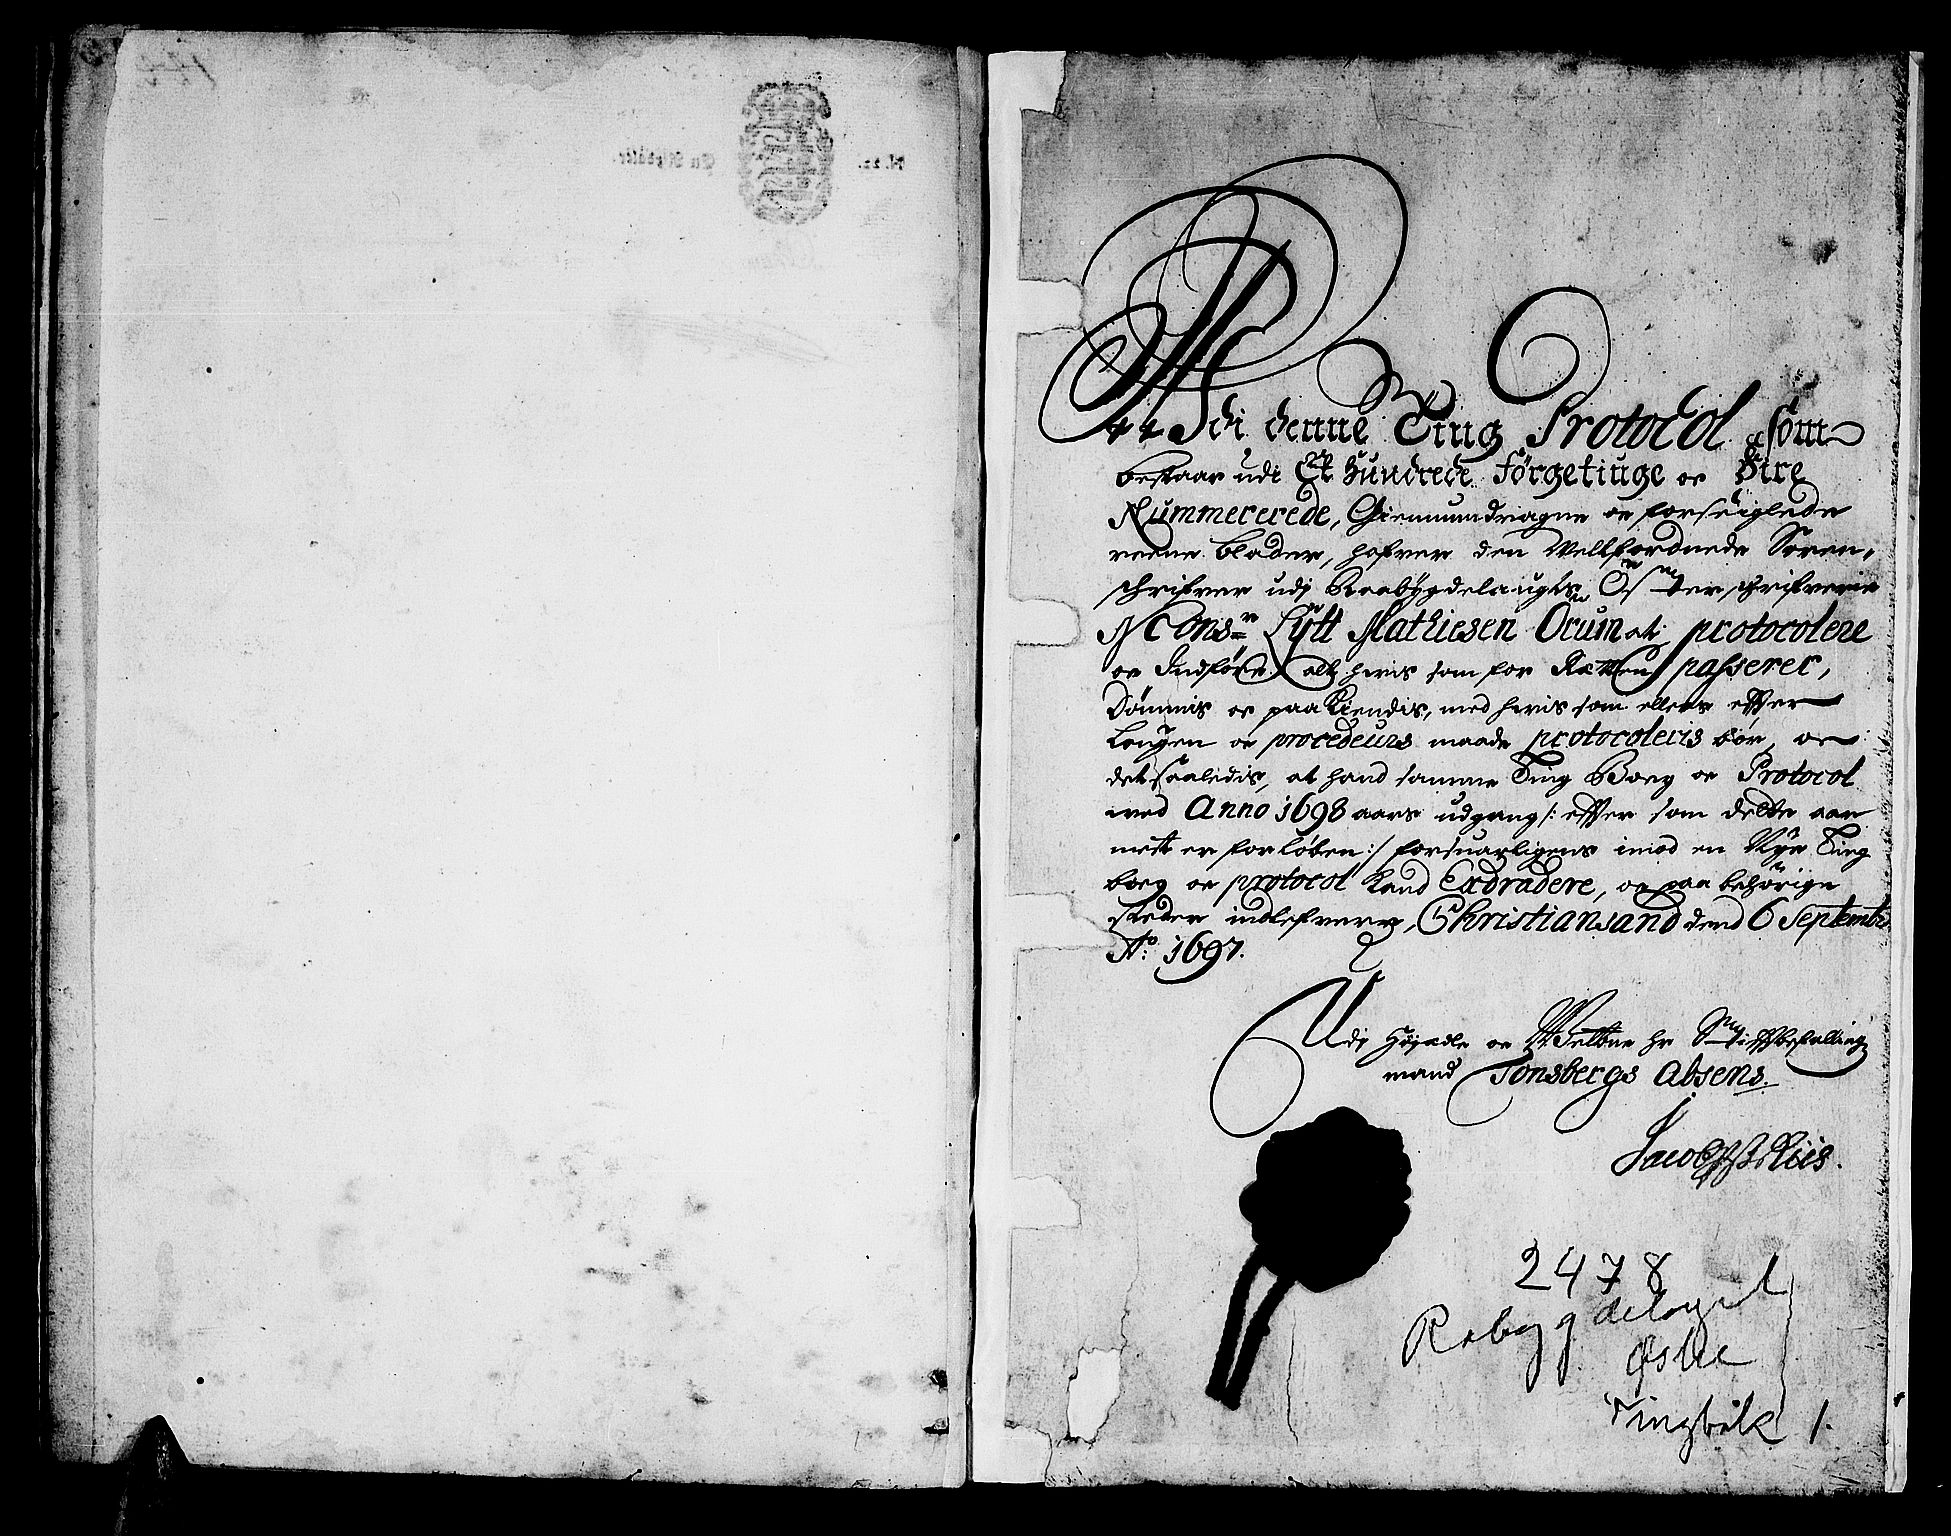 N. 22. En Skydsler.
Udi denne Ting Protocol som
bestaar udi Et Hundrede förgetiuge oc Fire
Nummererede, Giennumdragne oc forseiglede
reene blader, hafver den Wellfornede Soren-
schrifver udi Raabygdelaugts Öster schrifverie
Monsr Lytt Mathiesen Örum at protocolere
oc Indføre alt hvis som for Rætten passerer,
Dömmis oc paakiendis, med hvis som ellers effter
Lougen oc procedeurs maade protocoleris bör, oc
det saaledis, at hand samme Ting Boeg oc Protocol
ved Anno 1698 aars udgang /: effter som dette aar
mest er forløben :/ forsuarligens imod en Nye Ting
boeg oc protocol kand Exdradere, oc paa behörige
steder indlefvere, Christiansand dend 6 Septembr
Ao: 1697.
Udj Höjædle oc Welbne hr Stifftbefalling
mand Tonsbergs Absens.
Jacob Riis.
2478
Robygdelaget
Østre
Tingbok 1.